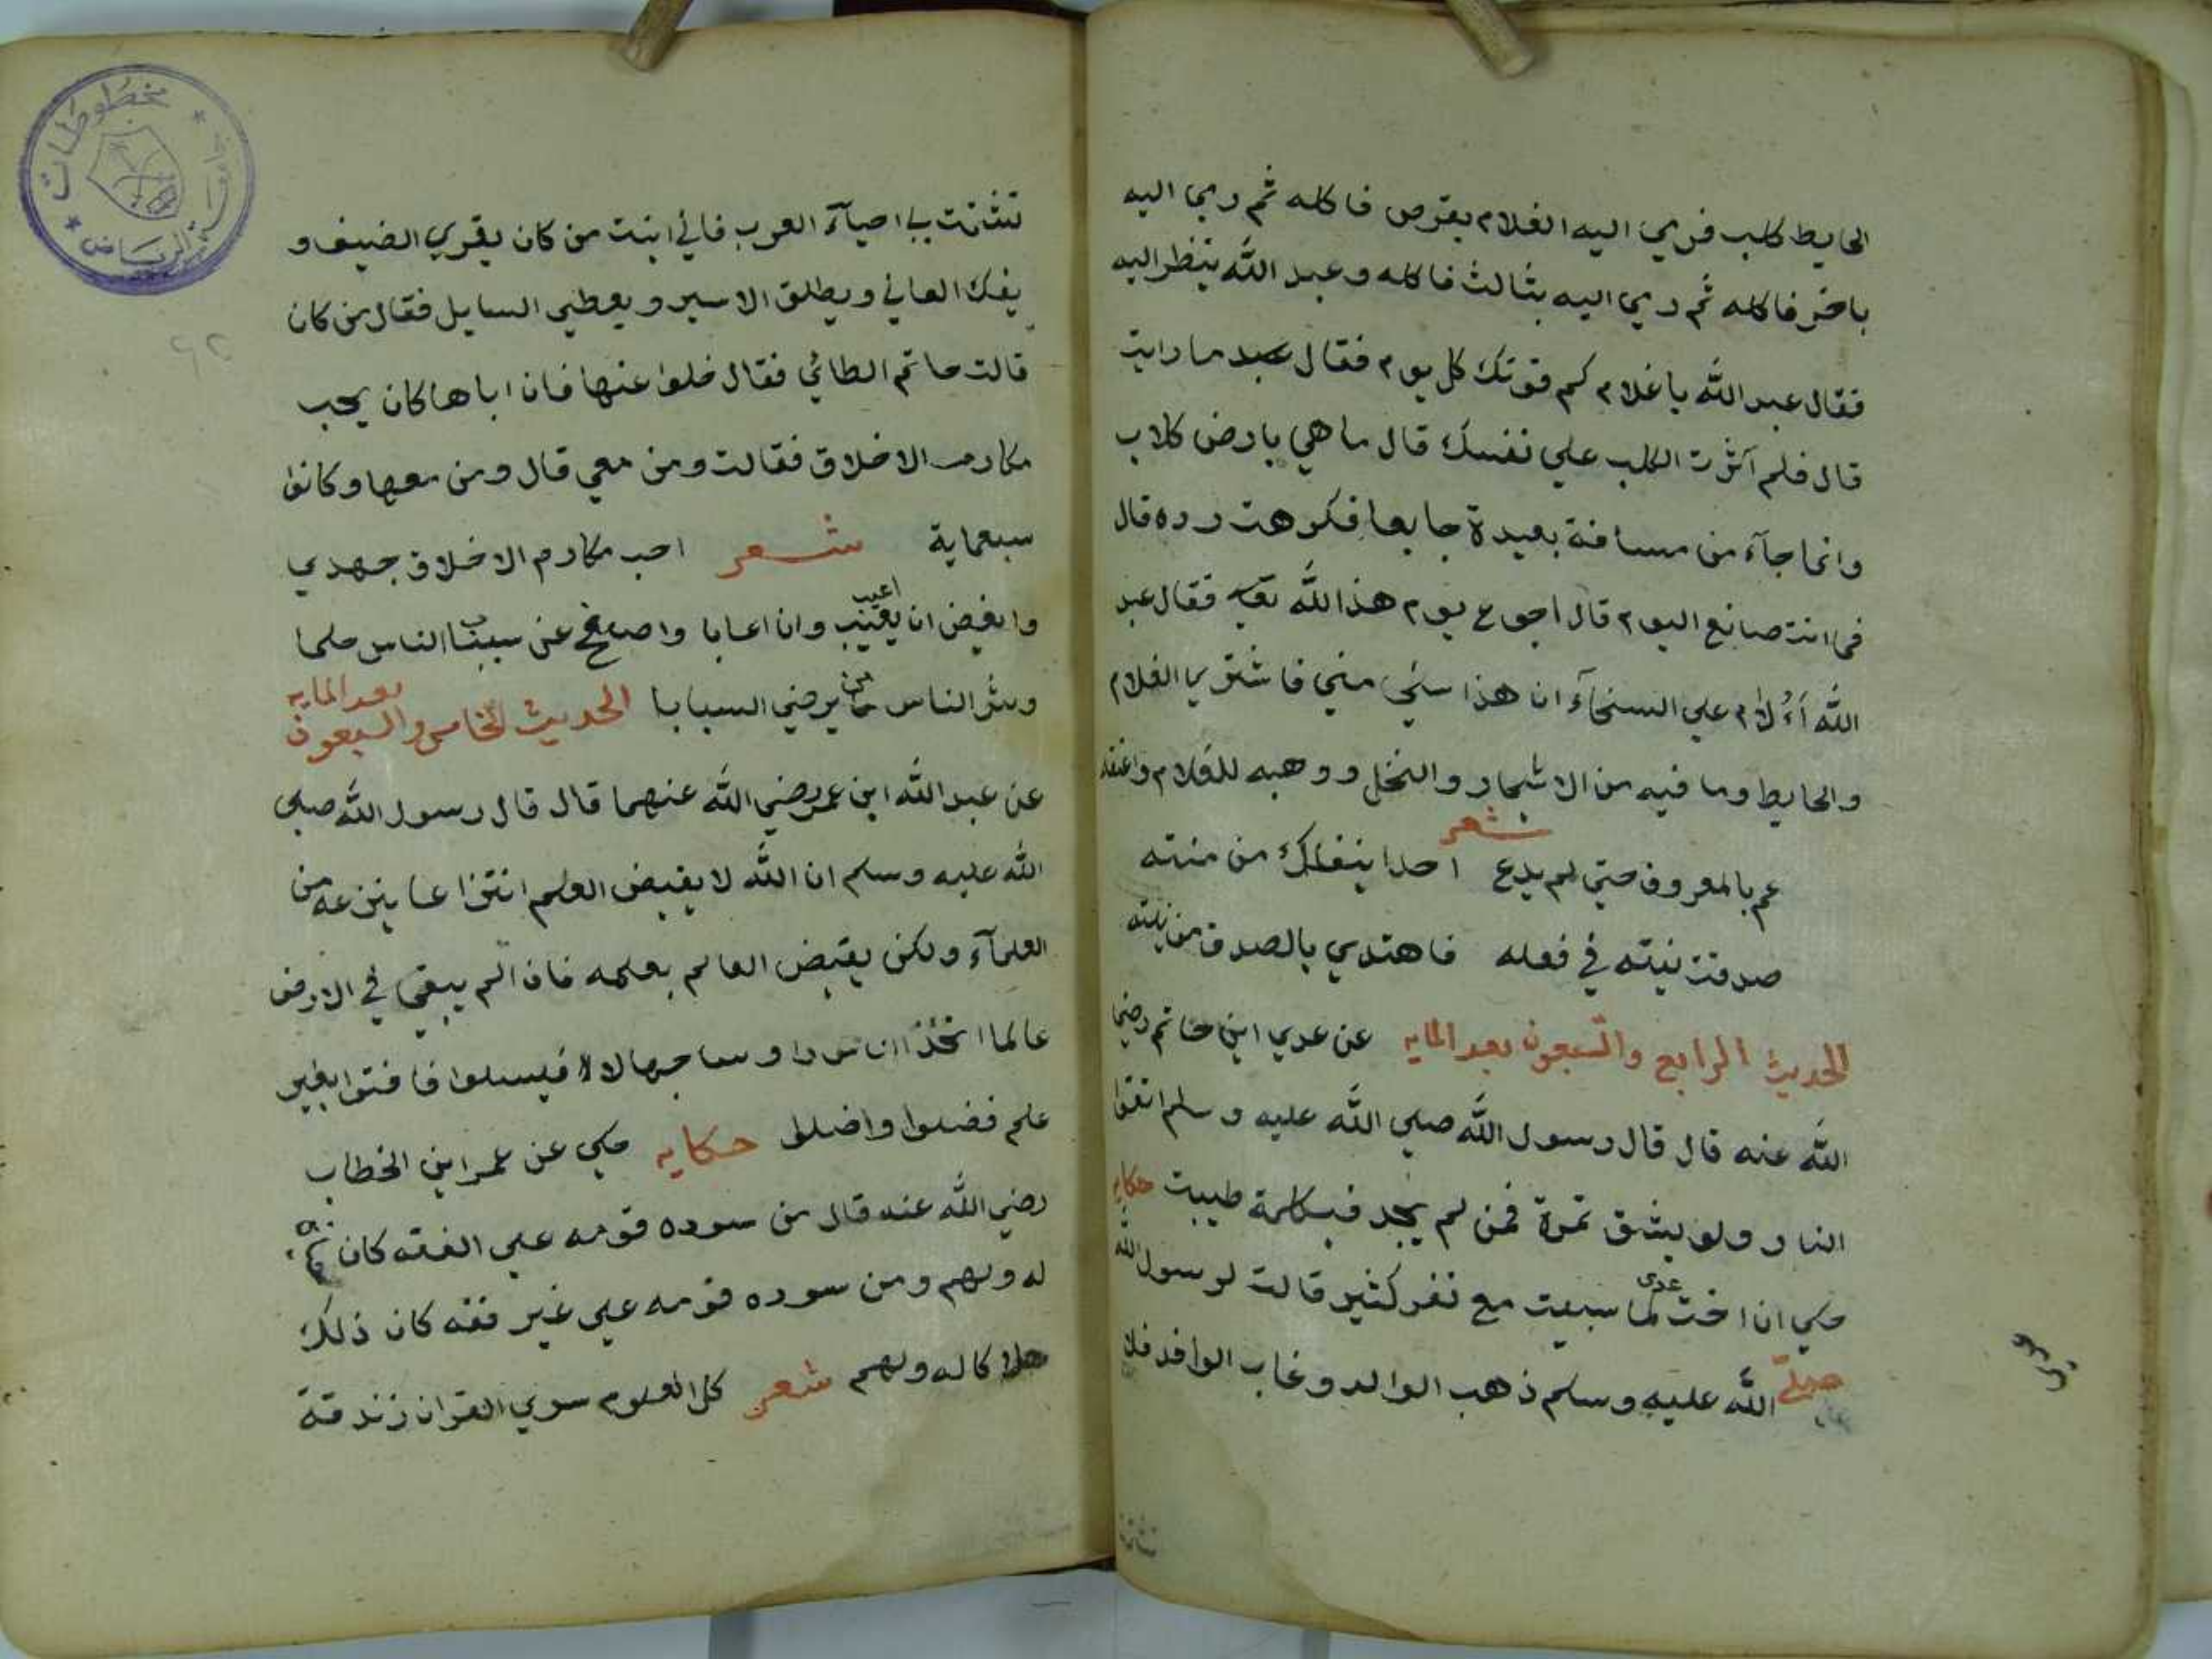 الحايط كلب فرمي اليه الغلام بقرص فاكله ثم رمي اليه
باخر فاكله ثم رمي اليه بثالث فاكله وعبد الله ينظر اليه
فقال عبد الله يا غلام كم قوتك كل يوم فقال ما رايت
قال فلم آثرت الكلب علي نفسك قال ما هي بارض كلاب
وانما جآء من مسافة بعيدة جايعا فكرهت رده قال
فما انت صانع اليوم قال اجوع يوم هذا لله فقال عبد
الله أءُلام علي السخآء ان هذا سخي مني فاشتري الغلام
والحايط وما فيه من الاشجار والنخل ووهبه للغلام واعتقه
شعر
عم بالمعروف حتي لم يدع احدا ينفك من منته
صدقت نيته في فعله فاهتدي بالصدق من نيته
الحديث الرابع والسبعون بعد المايه عن عدي ابن حاتم رضي
الله عنه قال قال رسول الله صلي الله عليه وسلم اتقوا
النار ولو بشق تمرة فمن لم يجد فبكلمة طيبت حكايه
حكي ان اخت عدى لما سبيت مع نفر كثير قالت لرسول الله
صلى الله عليه وسلم ذهب الوالد وغاب الوافد فلا
تشتت
تشتت بي احيآء العرب فاني ابنت من كان يقري الضيف و
يفك العاني ويطلق الاسير ويعطي السايل فقال من كان
قالت حاتم الطائي فقال خلوا عنها فان اباها كان يحب
مكارم الاخلاق فقالت ومن معي قال ومن معها وكانوا
سبعماية شعر احب مكارم الاخلاق جهدي
وابغض ان اعيب وان اعابا واصفح عن سباب الناس حلما
وشر الناس من يرضي السبابا الحديث الخامس والسبعون بعد المايه
عن عبد الله ابن عمر رضي الله عنهما قال قال رسول الله صلي
الله عليه وسلم ان الله لا يقبض العلم انتزاعا ينزعه من
العلمآء ولكن يقبض العالم بعلمه فاذا لم يبقي في الارض
عالما اتخذ الناس راوسا جهالا فيسلوا فافتوا بغير
علم فضلوا واضلوا حكايه حكي عن عمر ابن الخطاب
رضي الله عنه قال من سوده قومه علي الفقه كان
له ولهم ومن سوده قومه علي غير فقه كان ذلك
هلاكا له ولهم شعر كل العلوم سوي القران زندقة
مخطوطات
الرياض